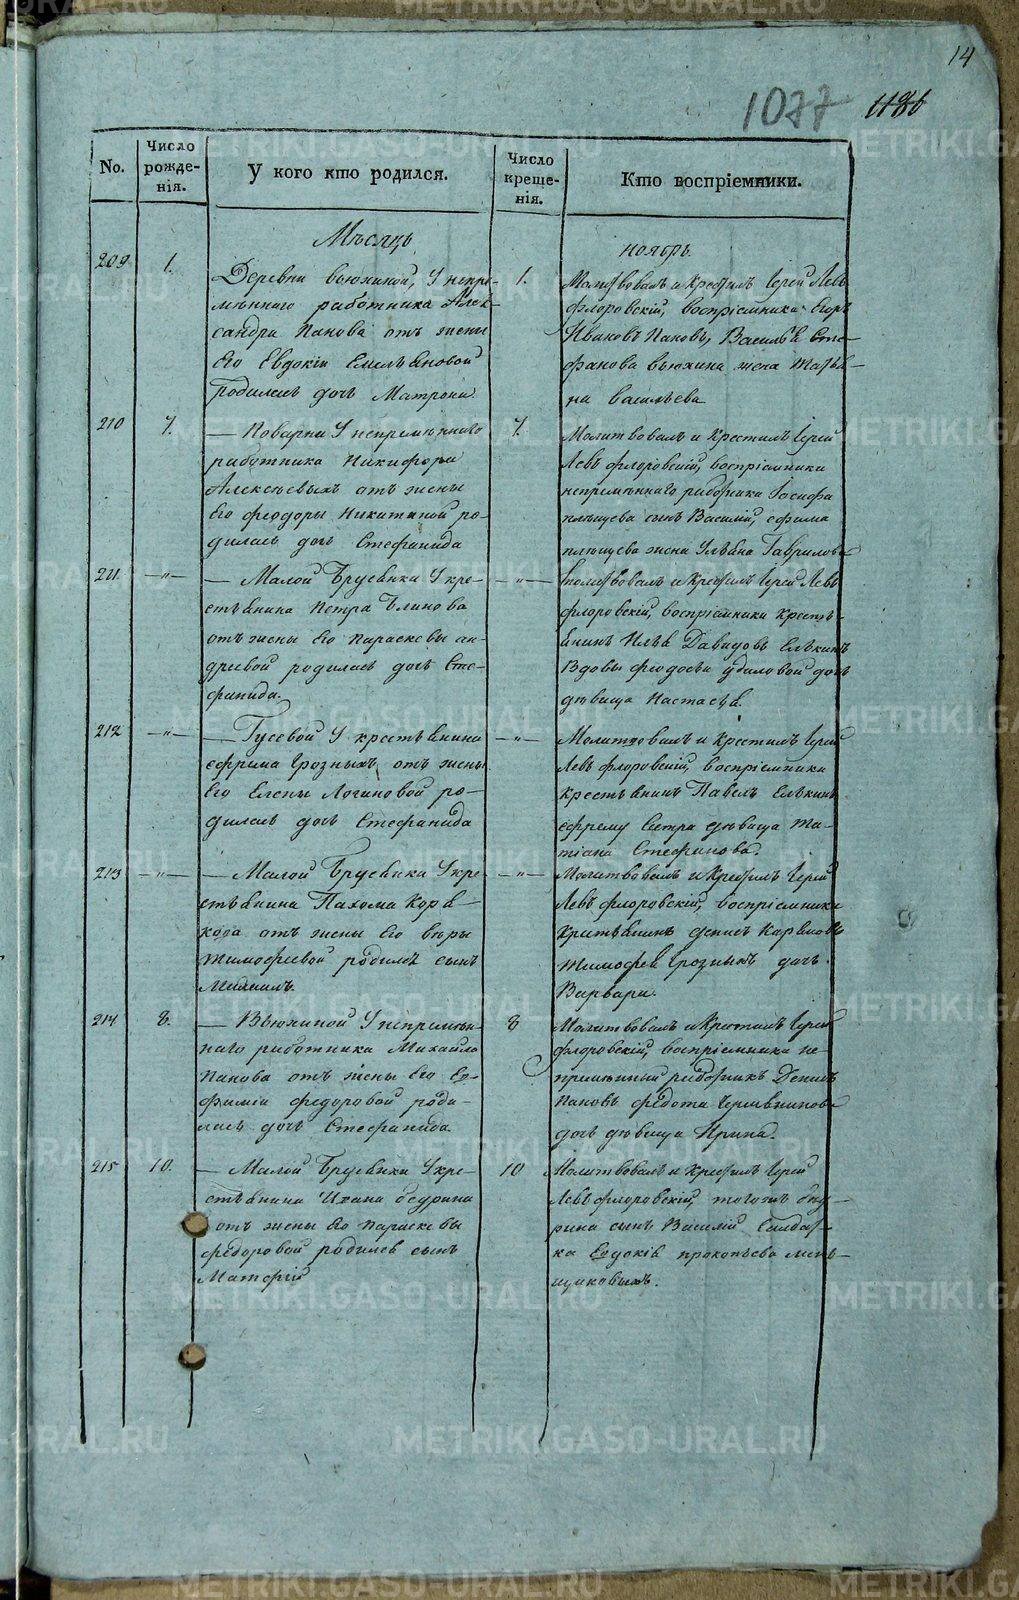 14
1077
No.
Число рожде-нія.
У кого кто родился.
Число креще-нія.
Кто воспріемники.
Мѣсяцъ
ноябрь.
209
1.
Деревни Вьюхиной, У непре-
мѣннаго работника Алек-
сандра Панова отъ жены
Его Евдокіи Емельяновой
родилась дочь Матрона
1.
Молитвовалъ и крестилъ Іерей Левъ
флоровскій, воспріемники Егоръ
Ивановъ Пановъ, Василья Сте-
фанова вьюхина жена Марья-
на васильева
210
7.
— Поварни У непремѣннаго
работника Никифора
Алексѣевыхъ отъ жены
Его феодоры Никитиной ро-
дилась дочь Стефанида
7.
Молитвовалъ и крестилъ Іерей
Левъ флоровскій, воспріемники
непремѣннаго работника Іосифа
сынъ Василій, ефима
жена Ульяна Гаврилова
211.
—"—
— Малой Брусянки У кре-
стьянина Петра Блинова
отъ жены Его параскевы ан-
дреевой родилась дочь Сте-
фанида.
—"—
молитвовалъ и крестилъ Іерей Левъ
флоровскій, воспріемники крестъ-
янинъ Илья Давыдовъ Елькинъ
Вдовы феодосьи удаловой дочь
дѣвица Настасья.
212
—"—
— Гусевой У крестьянина
ефрема Грозныхъ, отъ жены
Его Елены Логиновой ро-
дилась дочь Стефанида
—"—
Молитвовалъ и крестилъ Іерей
Левъ флоровскій, воспріемники
крестьянинъ Павелъ Елькинъ
ефрему Сестра дѣвица Та-
тіана Стефанова.
213
—"—
— Малой Брусянки У кре-
стьянина Пахома Коря-
кова отъ жены Его вѣры
тимофеевой родился сынъ
Михаилъ.
—"—
Молитвовалъ и крестилъ Іерей
Левъ флоровскій, воспріемники
денисъ
тимофея Грозныхъ дочь
Варвара.
214
8.
— Вьюхиной У непремѣн-
наго работника Михайла
Панова отъ жены Его Ев-
фиміи федоровой роди-
лась дочь Стефанида.
8
Молитвовалъ и Крестилъ Іерей
флоровскій, воспріемники не-
премѣнный работникъ Денисъ
Пановъ федота
дочь дѣвица Ирина.
215
10.
— Малой Брусянки У кре-
стьянина Ивана
отъ жены Его параскевы
федоровой родился сынъ
10
Молитвовалъ и крестилъ Іерей
Левъ флоровскій, тогожъ
рина сынъ Василій Солдат-
ка Евдокія прокопьева мень-
щиковыхъ.
METRIKI.GASO-URAL.RU